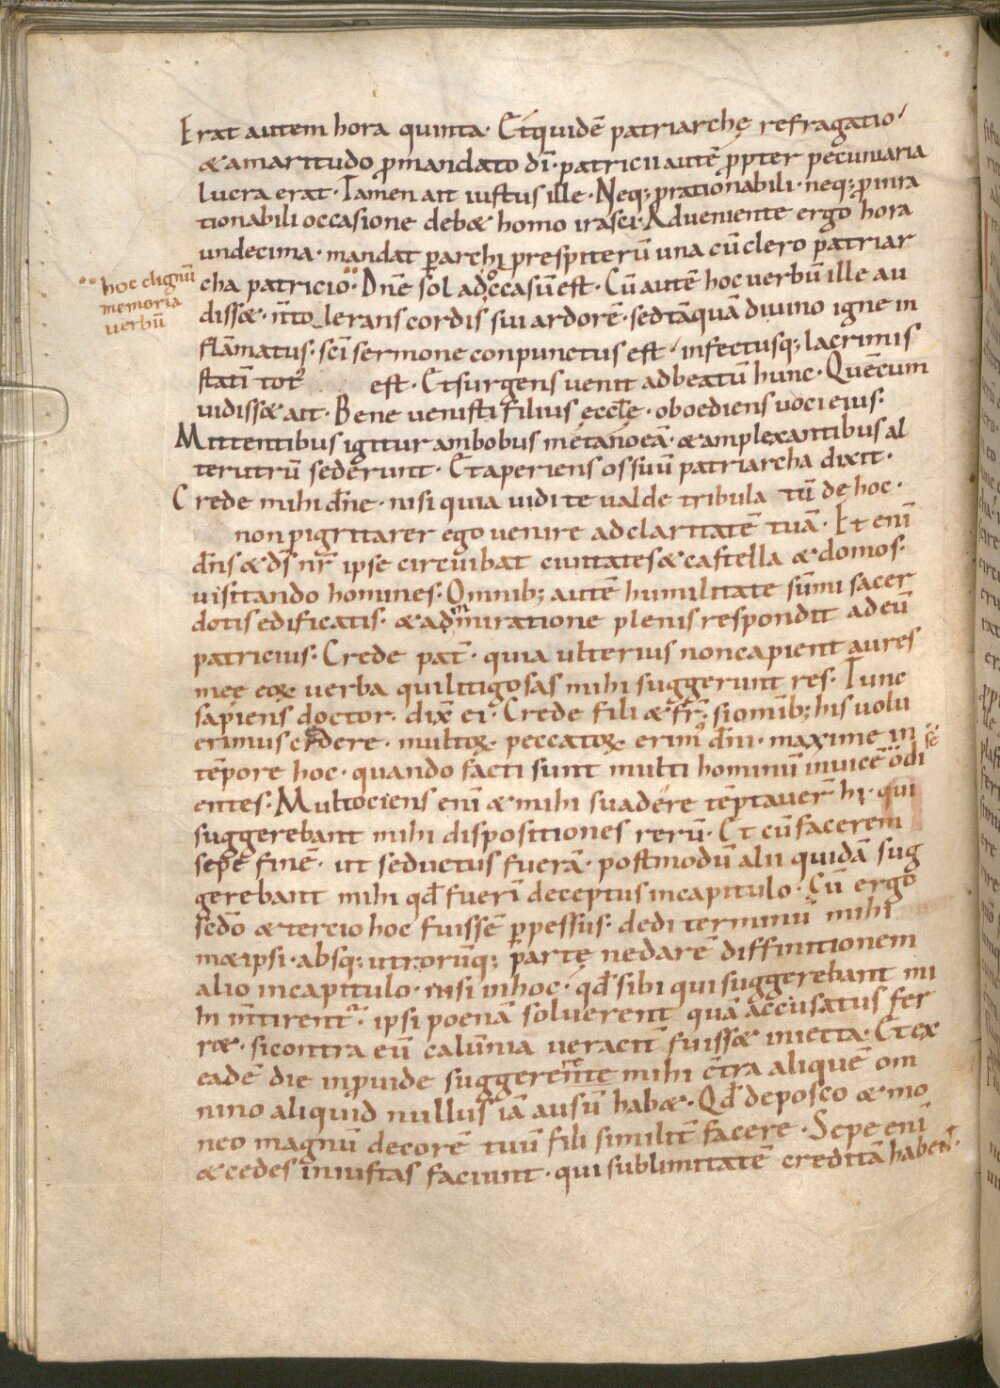 Erat autem hora quinta· Et quidē patriarchę refragatio
& amaritudo ꝓmandato dī· patricii autē ꝓpter pecuniaria
lucra erat· Tamen ait iustus ille· Neq; ꝓrationabili· neq; ꝓinra
tionabili occasione deb& homo irasci· Adueniente ergo hora
undecima· mandat ꝑarchi prespiterū una cū clero patriar
cha patricio· Dn̄e sol ad occasū est· Cū autē hoc uerbū ille au
diss&· n̄ tolerans cordis sui ardorē· sed tāquā diuino igne in
flāmatus· sc̄i sermone conpunctus est· infectusq; lacrimis
statī tot' est· Et surgens uenit ad beatū hunc· Quēcum
uidiss& ait· Bene uenisti filius eccl̄ę· oboediens uoci eius:
hoc dignū
memoria
uerbū
Mittentibus igitur ambobus metanoeā· & amplexantibus al
terutrū sederunt· Et aperiens os suū patriarcha dixit·
Crede mihi dn̄e· nisi quia uidi te ualde tribula tū de hoc·
non pigritarer ego uenire ad claritatē tuā· Et enī
dn̄s & ds̄ nr̄ ipse circuibat ciuitates & castella & domos·
uisitando homines· Omnib; autē humilitate sūmi sacer
dotis edificatis· & admiratione plenis respondit ad eū
patricius· Crede pat̄· quia ulterius non capient aures
meę eoꝝ uerba qui litigosas mihi suggerunt res· Tunc
sapiens doctor· dix̄ ei· Crede fili & fr̄· si om̄ib; his uolu
erimus credere· multoꝝ peccatoꝝ erim' dn̄i· maxime in
tēpore hoc· quando facti sunt multi hominū inuicē se odi
entes· Multociens enī & mihi suadere tēptauer̄ hi· qui
suggerebant mihi dispositiones rerū· Et cū facerem
sepe finē· ut seductus fuerā· postmodū alii quidā sug
gerebant mihi qd̄ fuerī deceptus in capitulo· Cū ergo
sed̄o & tercio hoc fuissē ꝑpessus· dedi terminū mihi
m&ipsi· absq; utrorūq; partę ne darē diffinitionem
alio in capitulo· nisi in hoc· qd̄ si hi qui suggerebant mi
hi m̄tirent'· ipsi poenā soluerent quā accusatus fer
r&· si contra eū calūnia ueracit̄ fuiss& iniecta· Et ex
eadē die inꝓuide suggerente mihi c̄tra aliquē om
nino aliquid nullus iā ausū hab&· Qd̄ deposco & mo
neo magnū decorē tuū fili similit̄ facere· Sepe enī
& cedes iniustas faciunt· qui sublimitatē creditā habent·